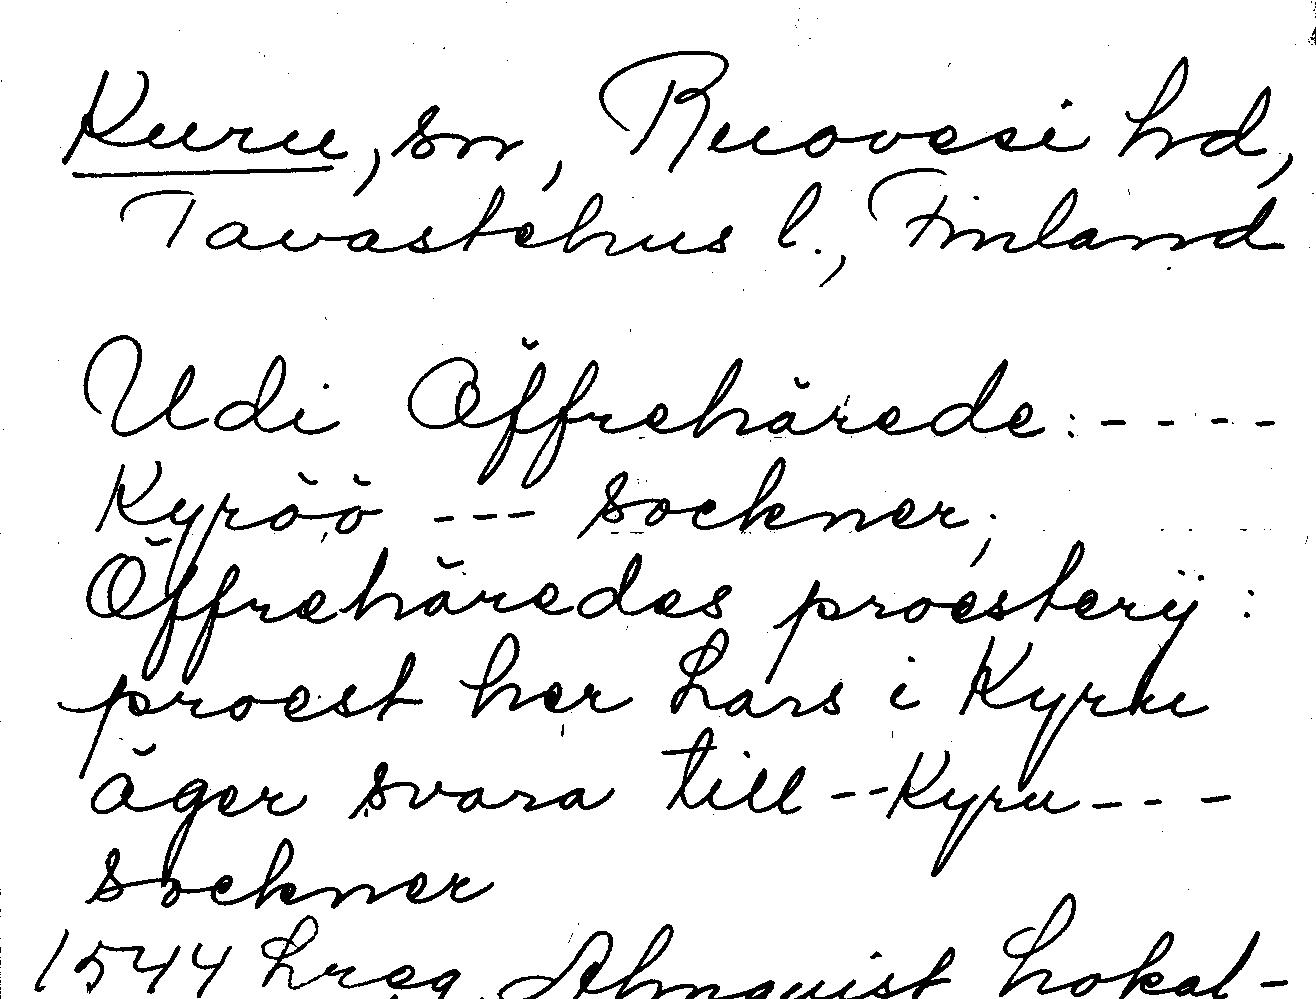 Kuru, sn, Ruovesi hd,
Tavastehus l., Finland
Udi Öffrehärede: ----
Kyröö --- sockner;
Öffrehäredes proesterij:
proest her Lars i Kyru
äger svara till -- Kyru ---
sockner
1544 Lreg. Almquist Lokal-